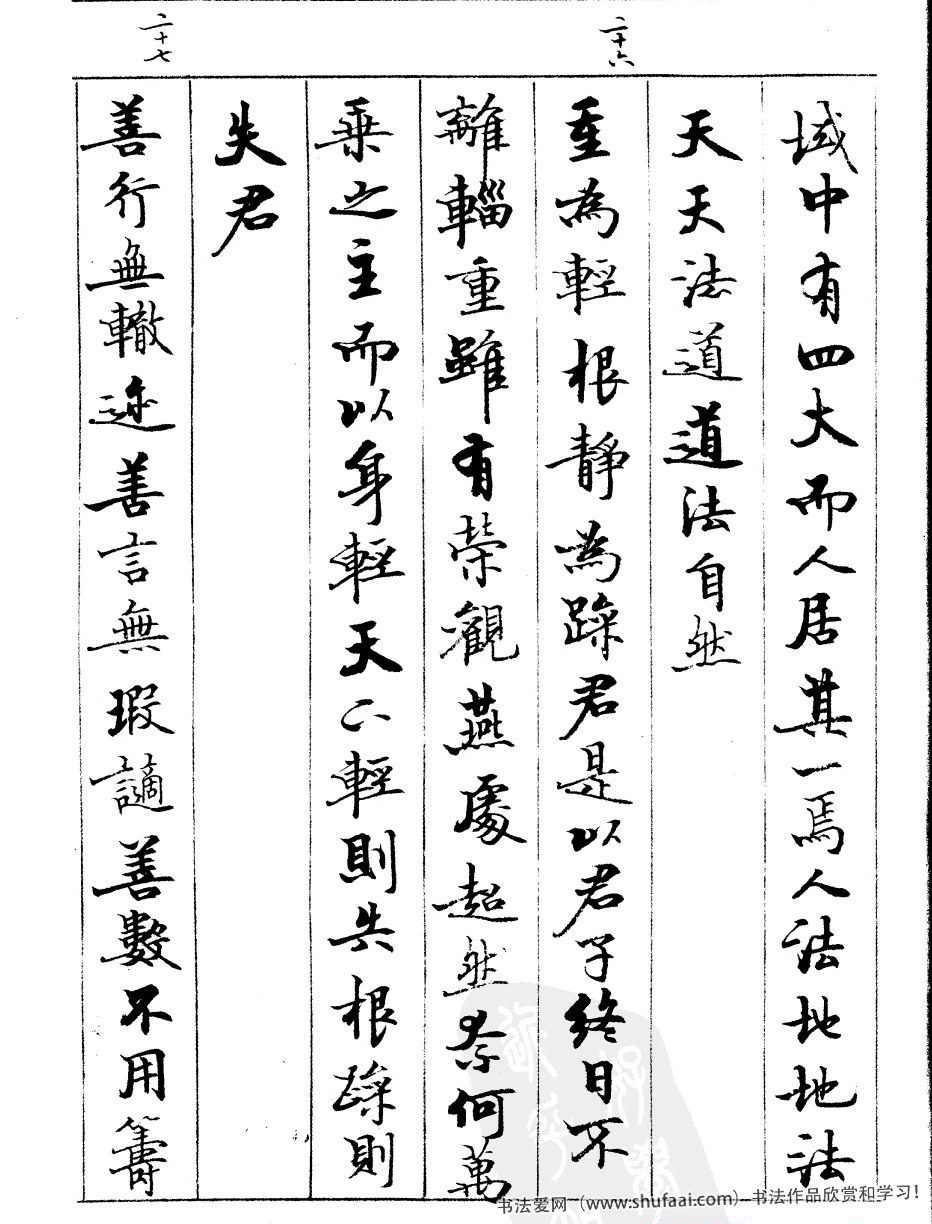 域中有四大而人居其一焉人法地地法
天天法道道法自然
二十六
重為輕根靜為躁君是以君子終日不
離輜重雖有榮觀燕處超然奈何萬
乘之主而以身輕天下輕則失根躁則
失君
二十七
善行無轍迹善言無瑕謫善數不用籌
书法爱网（www.shufaai.com）书法作品欣赏和学习！